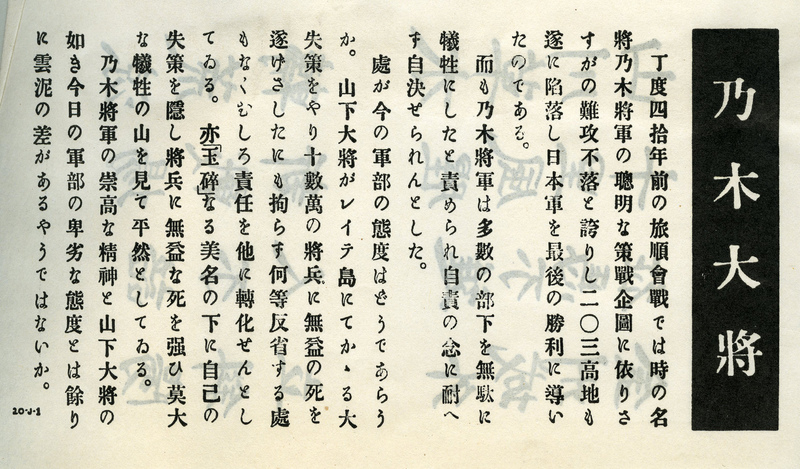 乃木大將
丁度四拾年前の旅順會戰では時の名
將乃木將軍の聰明な策戰企圖に依りさ
すがの難攻不落と誇りし二〇三高地も
遂に陷落し日本軍を最後の勝利に導い
たのである。
而も乃木將軍は多數の部下を無駄に
犧牲にしたと責められ自責の念に耐へ
す自決せられんとした。
處が今の軍部の態度はどうであらう
か。山下大將がレイテ島にてかゝる大
失策をやり十數萬の將兵に無益の死を
遂げさしたにも拘らす何等反省する處
もなくむしろ責任を他に轉化せんとし
てゐる。亦「玉碎」なる美名の下に自己の
失策を隱し將兵に無益な死を强ひ莫大
な犧牲の山を見て平然としてゐる。
乃木將軍の崇高な精神と山下大將の
如き今日の軍部の卑劣な態度とは餘り
に雲泥の差があるやうではないか。
20-J-1